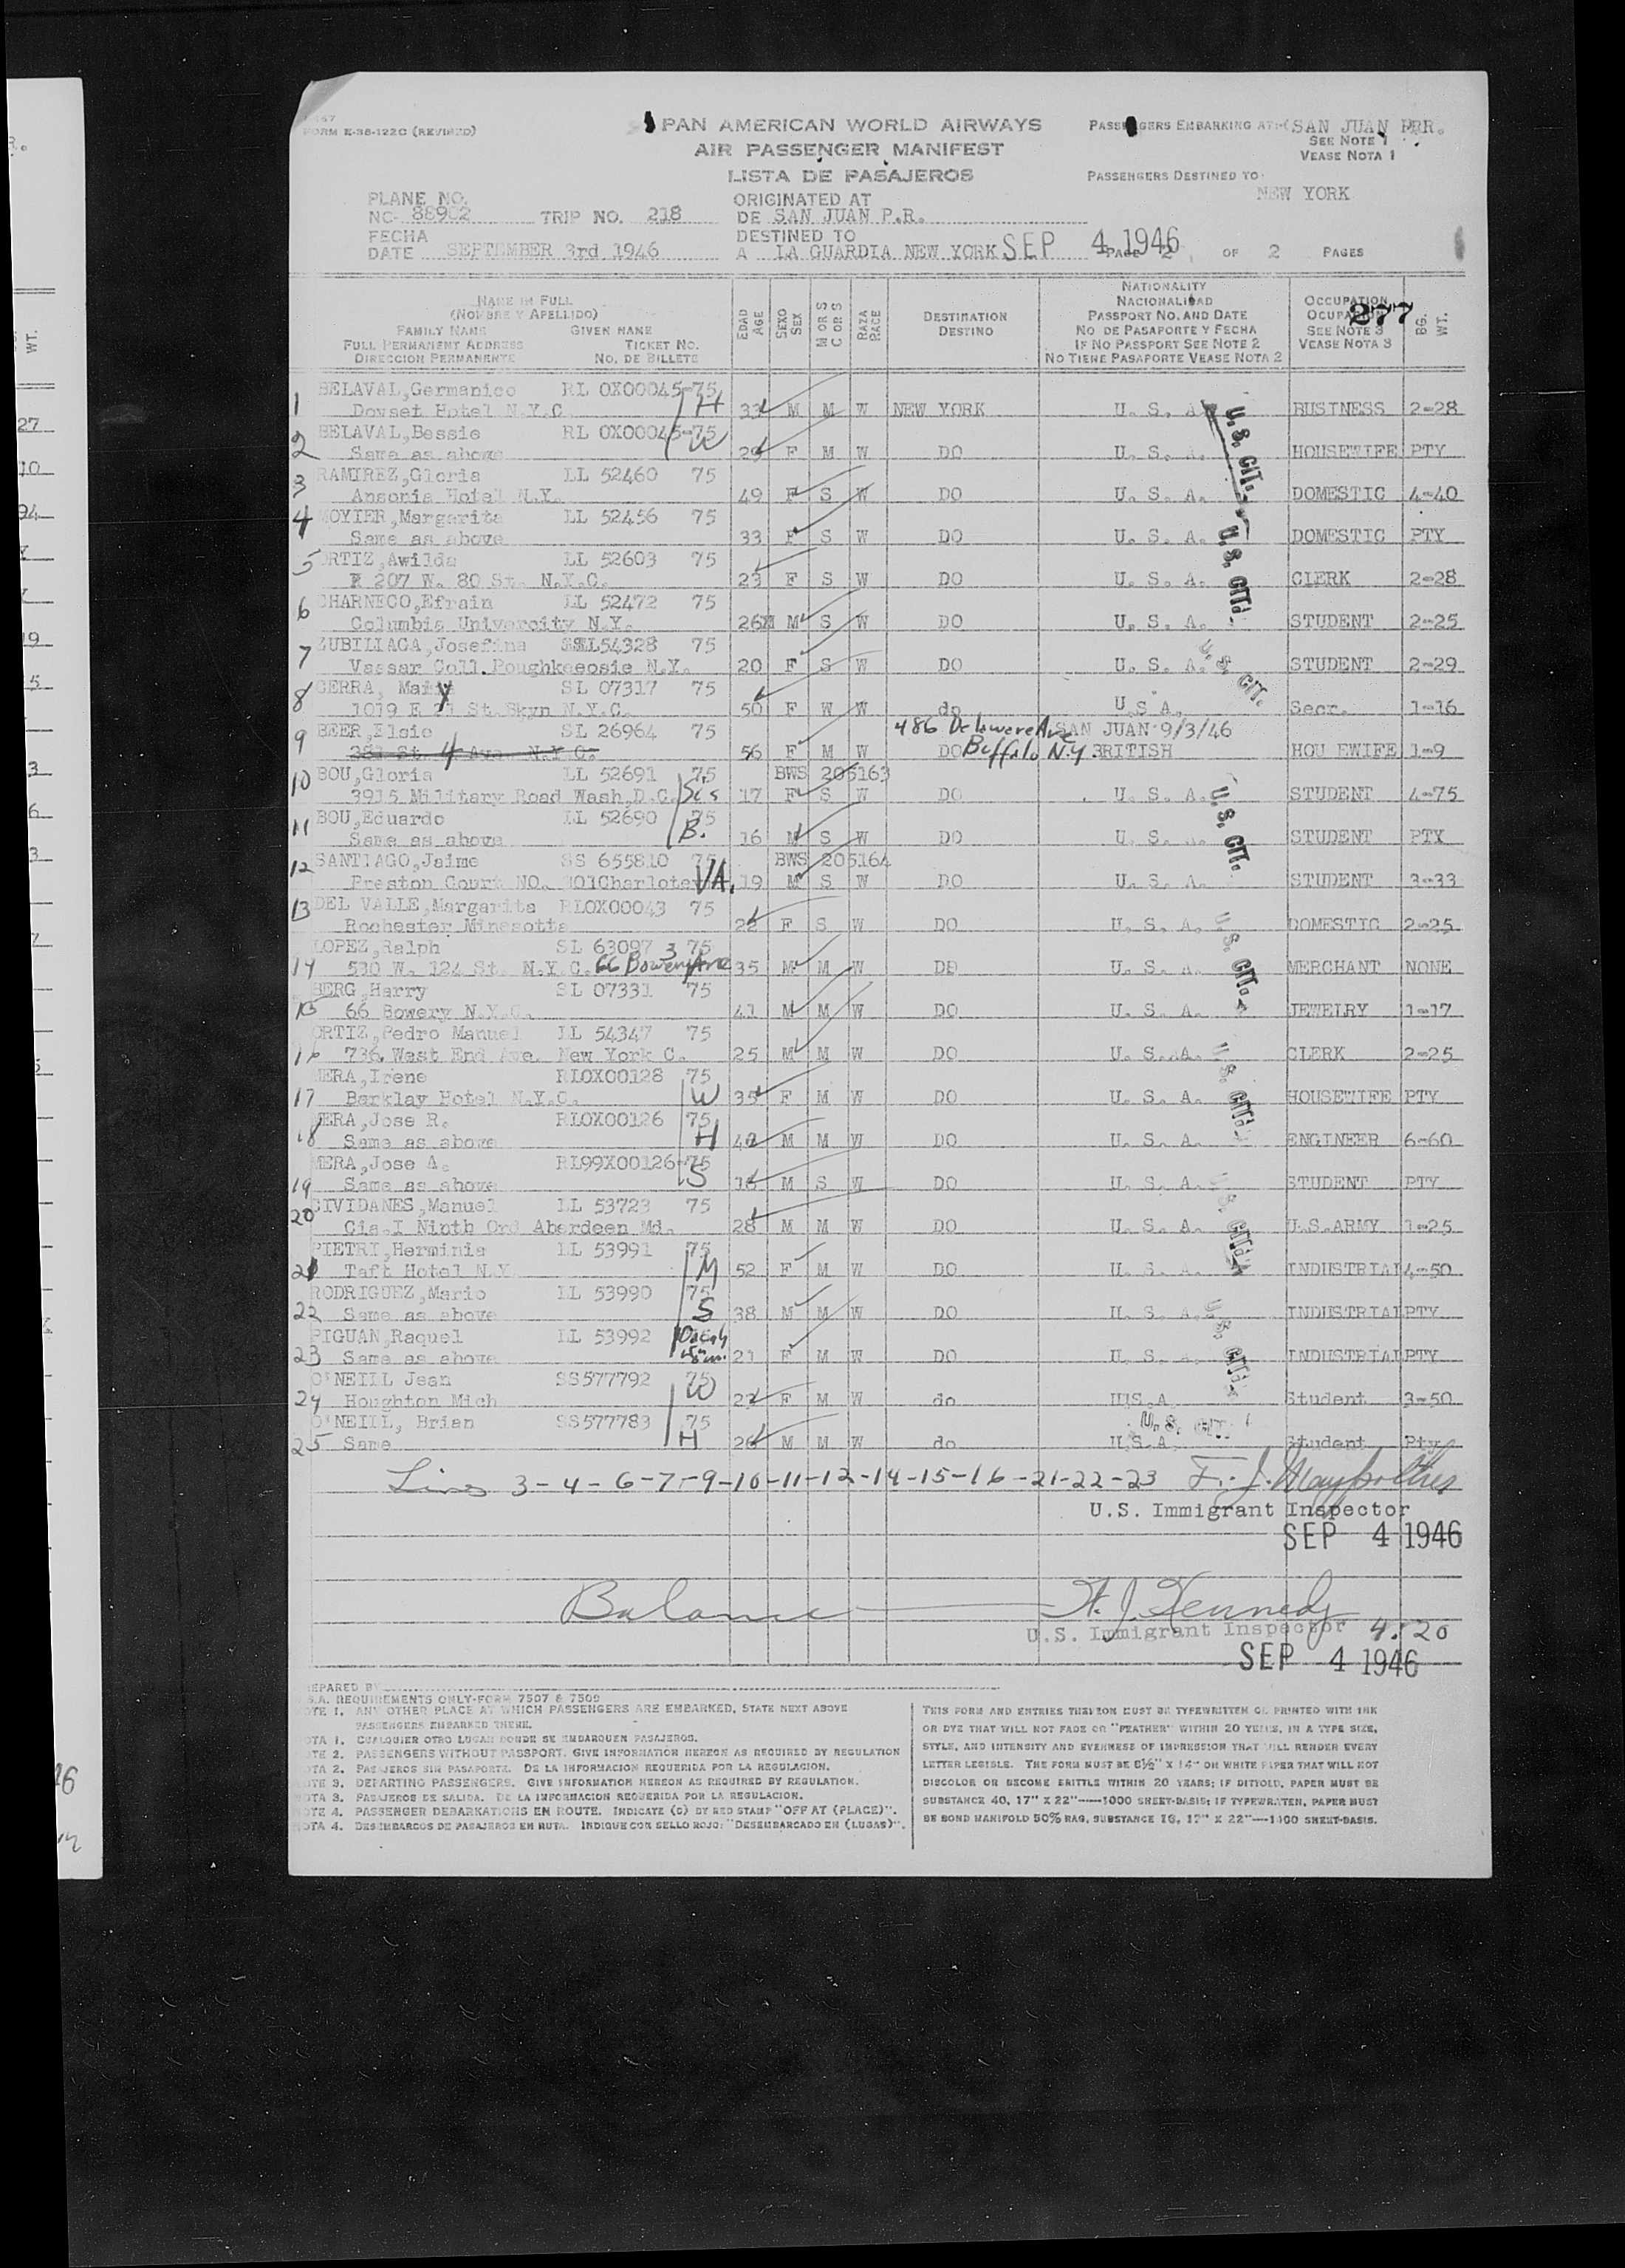 FORM E-38-122C (REVISED)
PAN AMERICAN WORLD AIRWAYS
AIR PASSENGER MANIFEST
LISTA DE PASAJEROS
PASSENGERS EMBARKING AT: SAN JUAN P.R.
SEE NOTE 1
VEASE NOTA 1
PASSENGERS DESTINED TO
NEW YORK
PLANE NO.
NC- 88902 TRIP NO. 218
ORIGINATED AT
DE SAN JUAN P.R.
FECHA
DATE SEPTEMBER 3rd 1946
DESTINED TO
A LA GUARDIA NEW YORK SEP 4 1946 PAGE 2 OF 2 PAGES
277
NAME IN FULL
(NOMBRE Y APELLIDO)
FAMILY NAME GIVEN NAME
FULL PERMANENT ADDRESS TICKET NO.
DIRECCION PERMANENTE NO. DE BILLETE
EDAD AGE
SEXO SEX
M OR S
C OR S
RAZA RACE
DESTINATION
DESTINO
NATIONALITY
NACIONALIDAD
PASSPORT NO. AND DATE
NO DE PASAPORTE Y FECHA
IF NO PASSPORT SEE NOTE 2
NO TIENE PASAPORTE VEASE NOTA 2
OCCUPATION
SEE NOTE 3
VEASE NOTA 3
BG. WT.
BELAVAL,Germanico RL OX00045-75
1 Dovset Hotel N.Y.C H 33 M M W NEW YORK U. S. A. BUSINESS 2-28
BELAVAL,Bessie RL OX00045-75
2 Same as above W 29 F M W DO U. S. A. HOUSEWIFE PTY
RAMIREZ,Gloria LL 52460 75
3 Ansonia Hotel N.Y. 49 F S W DO U. S. A. DOMESTIC 4-40
MOYIER,Margarita LL 52456 75
4 Same as above 33 F S W DO U. S. A. DOMESTIC PTY
ORTIZ,Awilda LL 52603 75
5 207 W. 80 St. N.Y.C. 23 F S W DO U. S. A. CLERK 2-28
CHARNECO,Efrain LL 52472 75
6 Columbia Univercity N.Y. 26 M S W DO U. S. A. STUDENT 2-25
ZUBILIAGA,Josefina LL54328 75
7 Vassar Coll.Poughkeeosie N.Y. 20 F S W DO U. S. A. STUDENT 2-29
GERRA, Mary SL 07317 75
8 1019 E 21 St.Bkyn N.Y.C. 50 F W W do U.S.A. Secr. 1-16
BEER,Elsie SL 26964 75 486 Delaware Ave SAN JUAN 9/3/46
9 381 St. 4 Ave. N.Y.C. 56 F M W DO Buffalo N.Y BRITISH HOU EWIFE 1-9
BOU,Gloria LL 52691 75 BWS 205163
10 3915 Military Road Wash,D.C. Sis 17 F S W DO U. S. A. STUDENT 4-75
BOU,Eduardo LL 52690 75
11 Same as above B. 16 M S W DO U. S. A. STUDENT PTY
SANTIAGO,Jaime SS 655810 75 BWS 205164
12 Preston Court NO. 101Charlote VA. 19 M S W DO U. S. A. STUDENT 3-33
DEL VALLE,Margarita RLOX00043 75
13 Rochester Minesotta 22 F S W DO U. S. A. DOMESTIC 2-25
LOPEZ,Ralph SL 63097 75
14 530 W. 124 St. N.Y.C. 66 Bowery Ave 35 M M W DO U. S. A. MERCHANT NONE
BERG,Harry SL 07331 75
15 66 Bowery N.Y.C. 41 M M W DO U. S. A. JEWELRY 1-17
ORTIZ,Pedro Manuel LL 54347 75
16 736 West End Ave. New York C. 25 M M W DO U. S. A. CLERK 2-25
MERA,Irene RLOX00128 75
17 Barklay Hotel N.Y.C. W 35 F M W DO U. S. A. HOUSEWIFE PTY
MERA,Jose R. RLOX00126 75
18 Same as above H 40 M M W DO U. S. A. ENGINEER 6-60
MERA,Jose A. RL99X00126-75
19 Same as above S 16 M S W DO U. S. A. STUDENT PTY
CIVIDANES,Manuel LL 53723 75
20 Cia.I Ninth Ord Aberdeen Md. 28 M M W DO U. S. A. U.S.ARMY 1-25
PIETRI,Herminia LL 53991 75
21 Taft Hotel N.Y M 52 F M W DO U. S. A. INDUSTRIAL 4-50
RODRIGUEZ,Mario LL 53990 75
22 Same as above S 38 M M W DO U. S. A. INDUSTRIAL PTY
PIGUAN,Raquel LL 53992
23 Same as above 21 F M W DO U. S. A. INDUSTRIAL PTY
O'NEILL Jean SS577792 75
24 Houghton Mich W 22 F M W do U.S.A Student 3-50
O'NEILL, Brian SS577783 75
25 Same H 26 M M W do U.S.A. Student Pty
U. S. CIT.
Lines 3-4-6-7-9-10-11-12-14-15-16-21-22-23
U.S. Immigrant Inspector
SEP 4 1946
Balance H. J. Kennedy
U.S. Immigrant Inspector 4.20
SEP 4 1946
PREPARED BY
S.A. REQUIREMENTS ONLY-FORM 7507 & 7509
NOTE 1. ANY OTHER PLACE AT WHICH PASSENGERS ARE EMBARKED, STATE NEXT ABOVE
PASSENGERS EMBARKED THERE.
NOTA 1. CUALQUIER OTRO LUGAR DONDE SE EMBARQUEN PASAJEROS.
NOTE 2. PASSENGERS WITHOUT PASSPORT. GIVE INFORMATION HEREON AS REQUIRED BY REGULATION
NOTA 2. PASAJEROS SIN PASAPORTE. DE LA INFORMACION REQUERIDA POR LA REGULACION.
NOTE 3. DEPARTING PASSENGERS. GIVE INFORMATION HEREON AS REQUIRED BY REGULATION.
NOTA 3. PASAJEROS DE SALIDA. DE LA INFORMACION REQUERIDA POR LA REGULACION.
NOTE 4. PASSENGER DEBARKATIONS EN ROUTE. INDICATE (C) BY RED STAMP "OFF AT (PLACE)".
NOTA 4. DESEMBARCOS DE PASAJEROS EN RUTA. INDIQUE CON SELLO ROJO: "DESEMBARCADO EN (LUGAS)".
THIS FORM AND ENTRIES THEREON MUST BE TYPEWRITTEN OR PRINTED WITH INK
OR DYE THAT WILL NOT FADE OR "FEATHER" WITHIN 20 YEARS, IN A TYPE SIZE,
STYLE, AND INTENSITY AND EVENNESS OF IMPRESSION THAT WILL RENDER EVERY
LETTER LEGIBLE. THE FORM MUST BE 8½" X 14" ON WHITE PAPER THAT WILL NOT
DISCOLOR OR BECOME BRITTLE WITHIN 20 YEARS; IF DITTOED, PAPER MUST BE
SUBSTANCE 40, 17" X 22"—1000 SHEET-BASIS; IF TYPEWRITEN, PAPER MUST
BE BOND MANIFOLD 50% RAG, SUBSTANCE 16, 17" X 22"—1000 SHEET-BASIS.